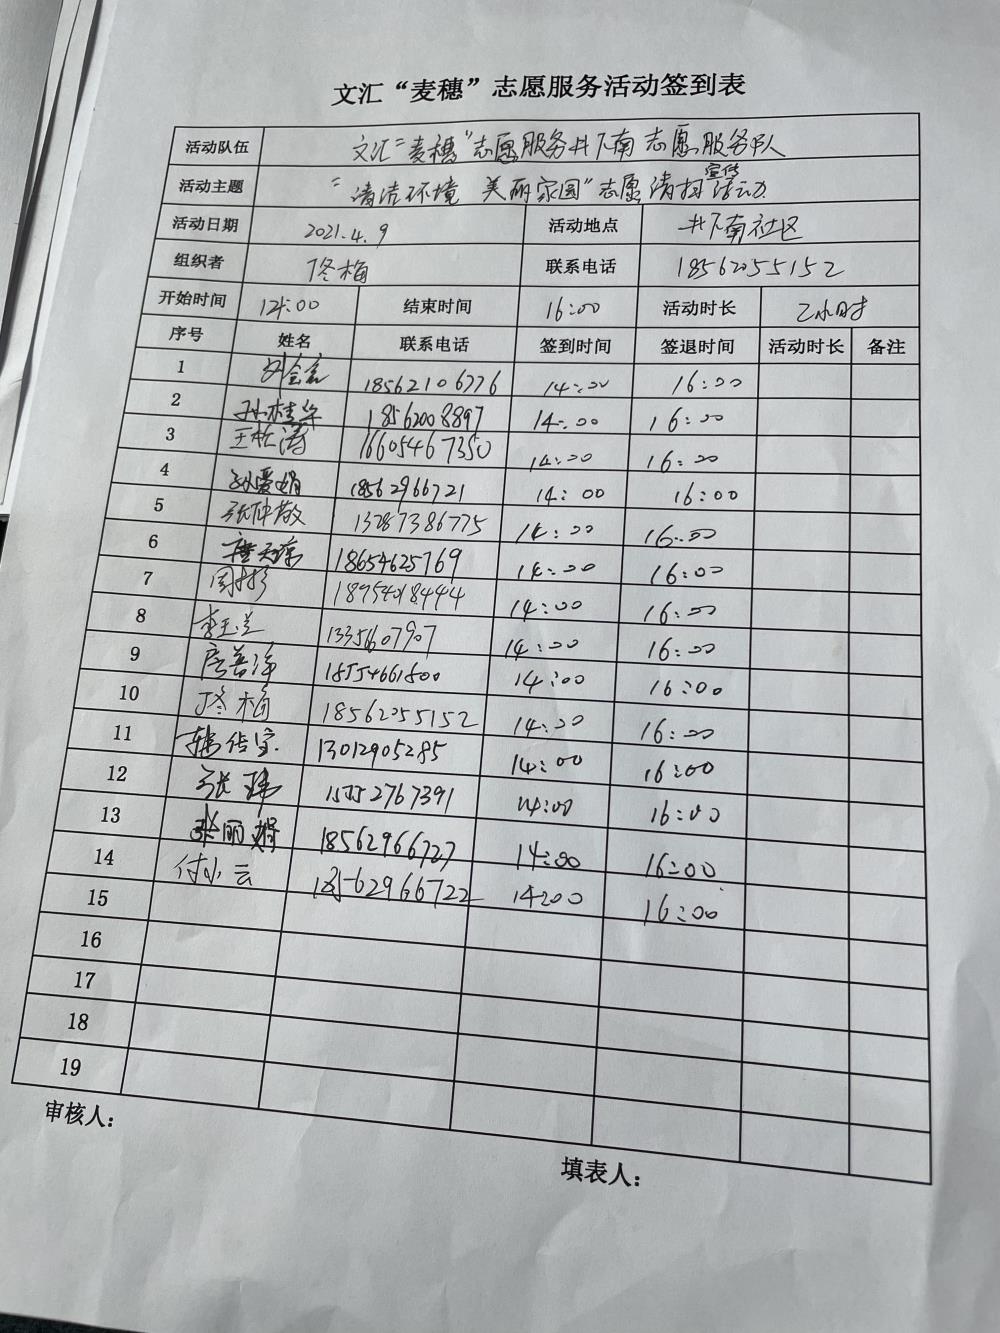 文汇“麦穗”志愿服务活动签到表
活动队伍 文汇“麦穗”志愿服务井下南志愿服务队
活动主题 “清洁环境 美丽家园”志愿清扫宣传活动
活动日期 2021.4.9 活动地点 井下南社区
组织者 佟梅 联系电话 18562055152
开始时间 14:00 结束时间 16:00 活动时长 2小时
序号 姓名 联系电话 签到时间 签退时间 活动时长 备注
1 18562106776 14:00 16:00
2 孙桂华 18562008897 14:00 16:00
3 王松涛 16605467350 14:00 16:00
4 孙爱娟 18562966721 14:00 16:00
5 张仲敬 13287386775 14:00 16:00
6 18654625769 14:00 16:00
7 周彬 18954018444 14:00 16:00
8 李玉兰 1335607907 14:00 16:00
9 唐善净 18554661800 14:00 16:00
10 佟梅 18562055152 14:00 16:00
11 韩佳宝 13012905285 14:00 16:00
12 张玮 15552767391 14:00 16:00
13 张丽娟 18562966727 14:00 16:00
14 付小云 18562966722 14:00 16:00
15
16
17
18
19
审核人：
填表人：